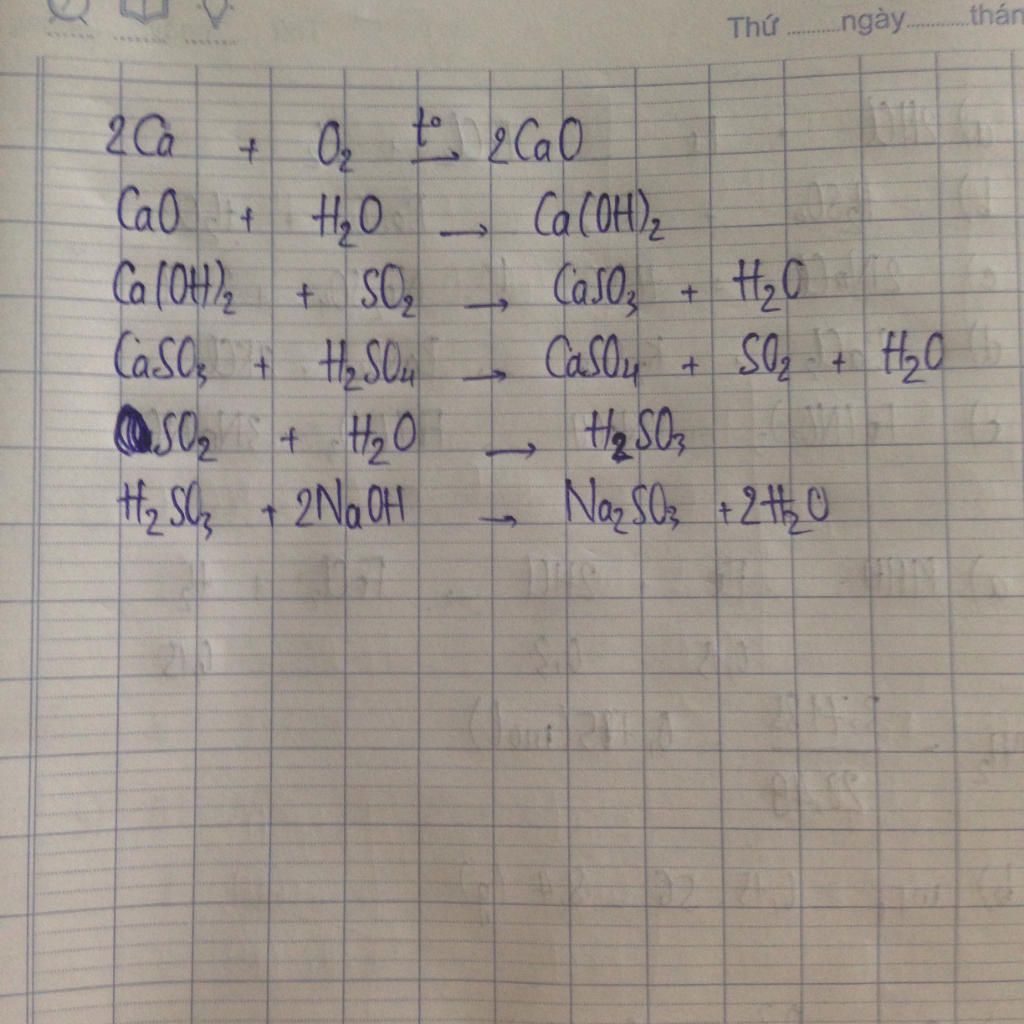 Thứ ..........ngày...........thán
2Ca + O₂ t° → 2CaO
CaO + H₂O → Ca(OH)₂
Ca(OH)₂ + SO₂ → CaSO₃ + H₂O
CaSO₃ + H₂SO₄ → CaSO₄ + SO₂ + H₂O
SO₂ + H₂O → H₂SO₃
H₂SO₃ + 2NaOH → Na₂SO₃ + 2H₂O